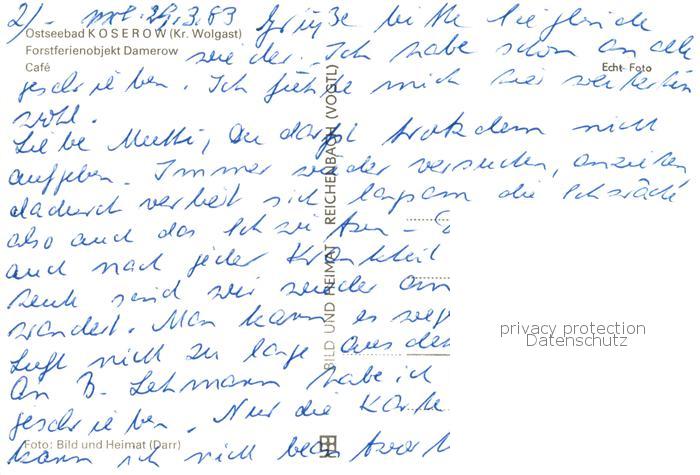 2/- mo. 29.3.83 Grüße bitte sie gleich
Ostseebad KOSEROW (Kr. Wolgast)
Forstferienobjekt Damerow
Café
wieder. Ich habe schon an alle
Echt Foto
geschrieben. Ich fühle mich hier weiterhin
wohl.
Liebe Mutti, Du darfst trotzdem nicht
aufgeben. Immer wieder versuchen, anziehen
dadurch verliert sich langsam die Schwäche
also auch das Schwitzen -
auch nach jeder Krankheit
heute sind wir wieder
wandert. Man kann es weg
Luft nicht zu lange aus
An B. Lehmann habe ich
geschrieben. Nur die Karte
kann ich nicht beantwort
BILD UND HEIMAT REICHENBACH (VOGTL)
Foto: Bild und Heimat (Darr)
privacy protection
Datenschutz